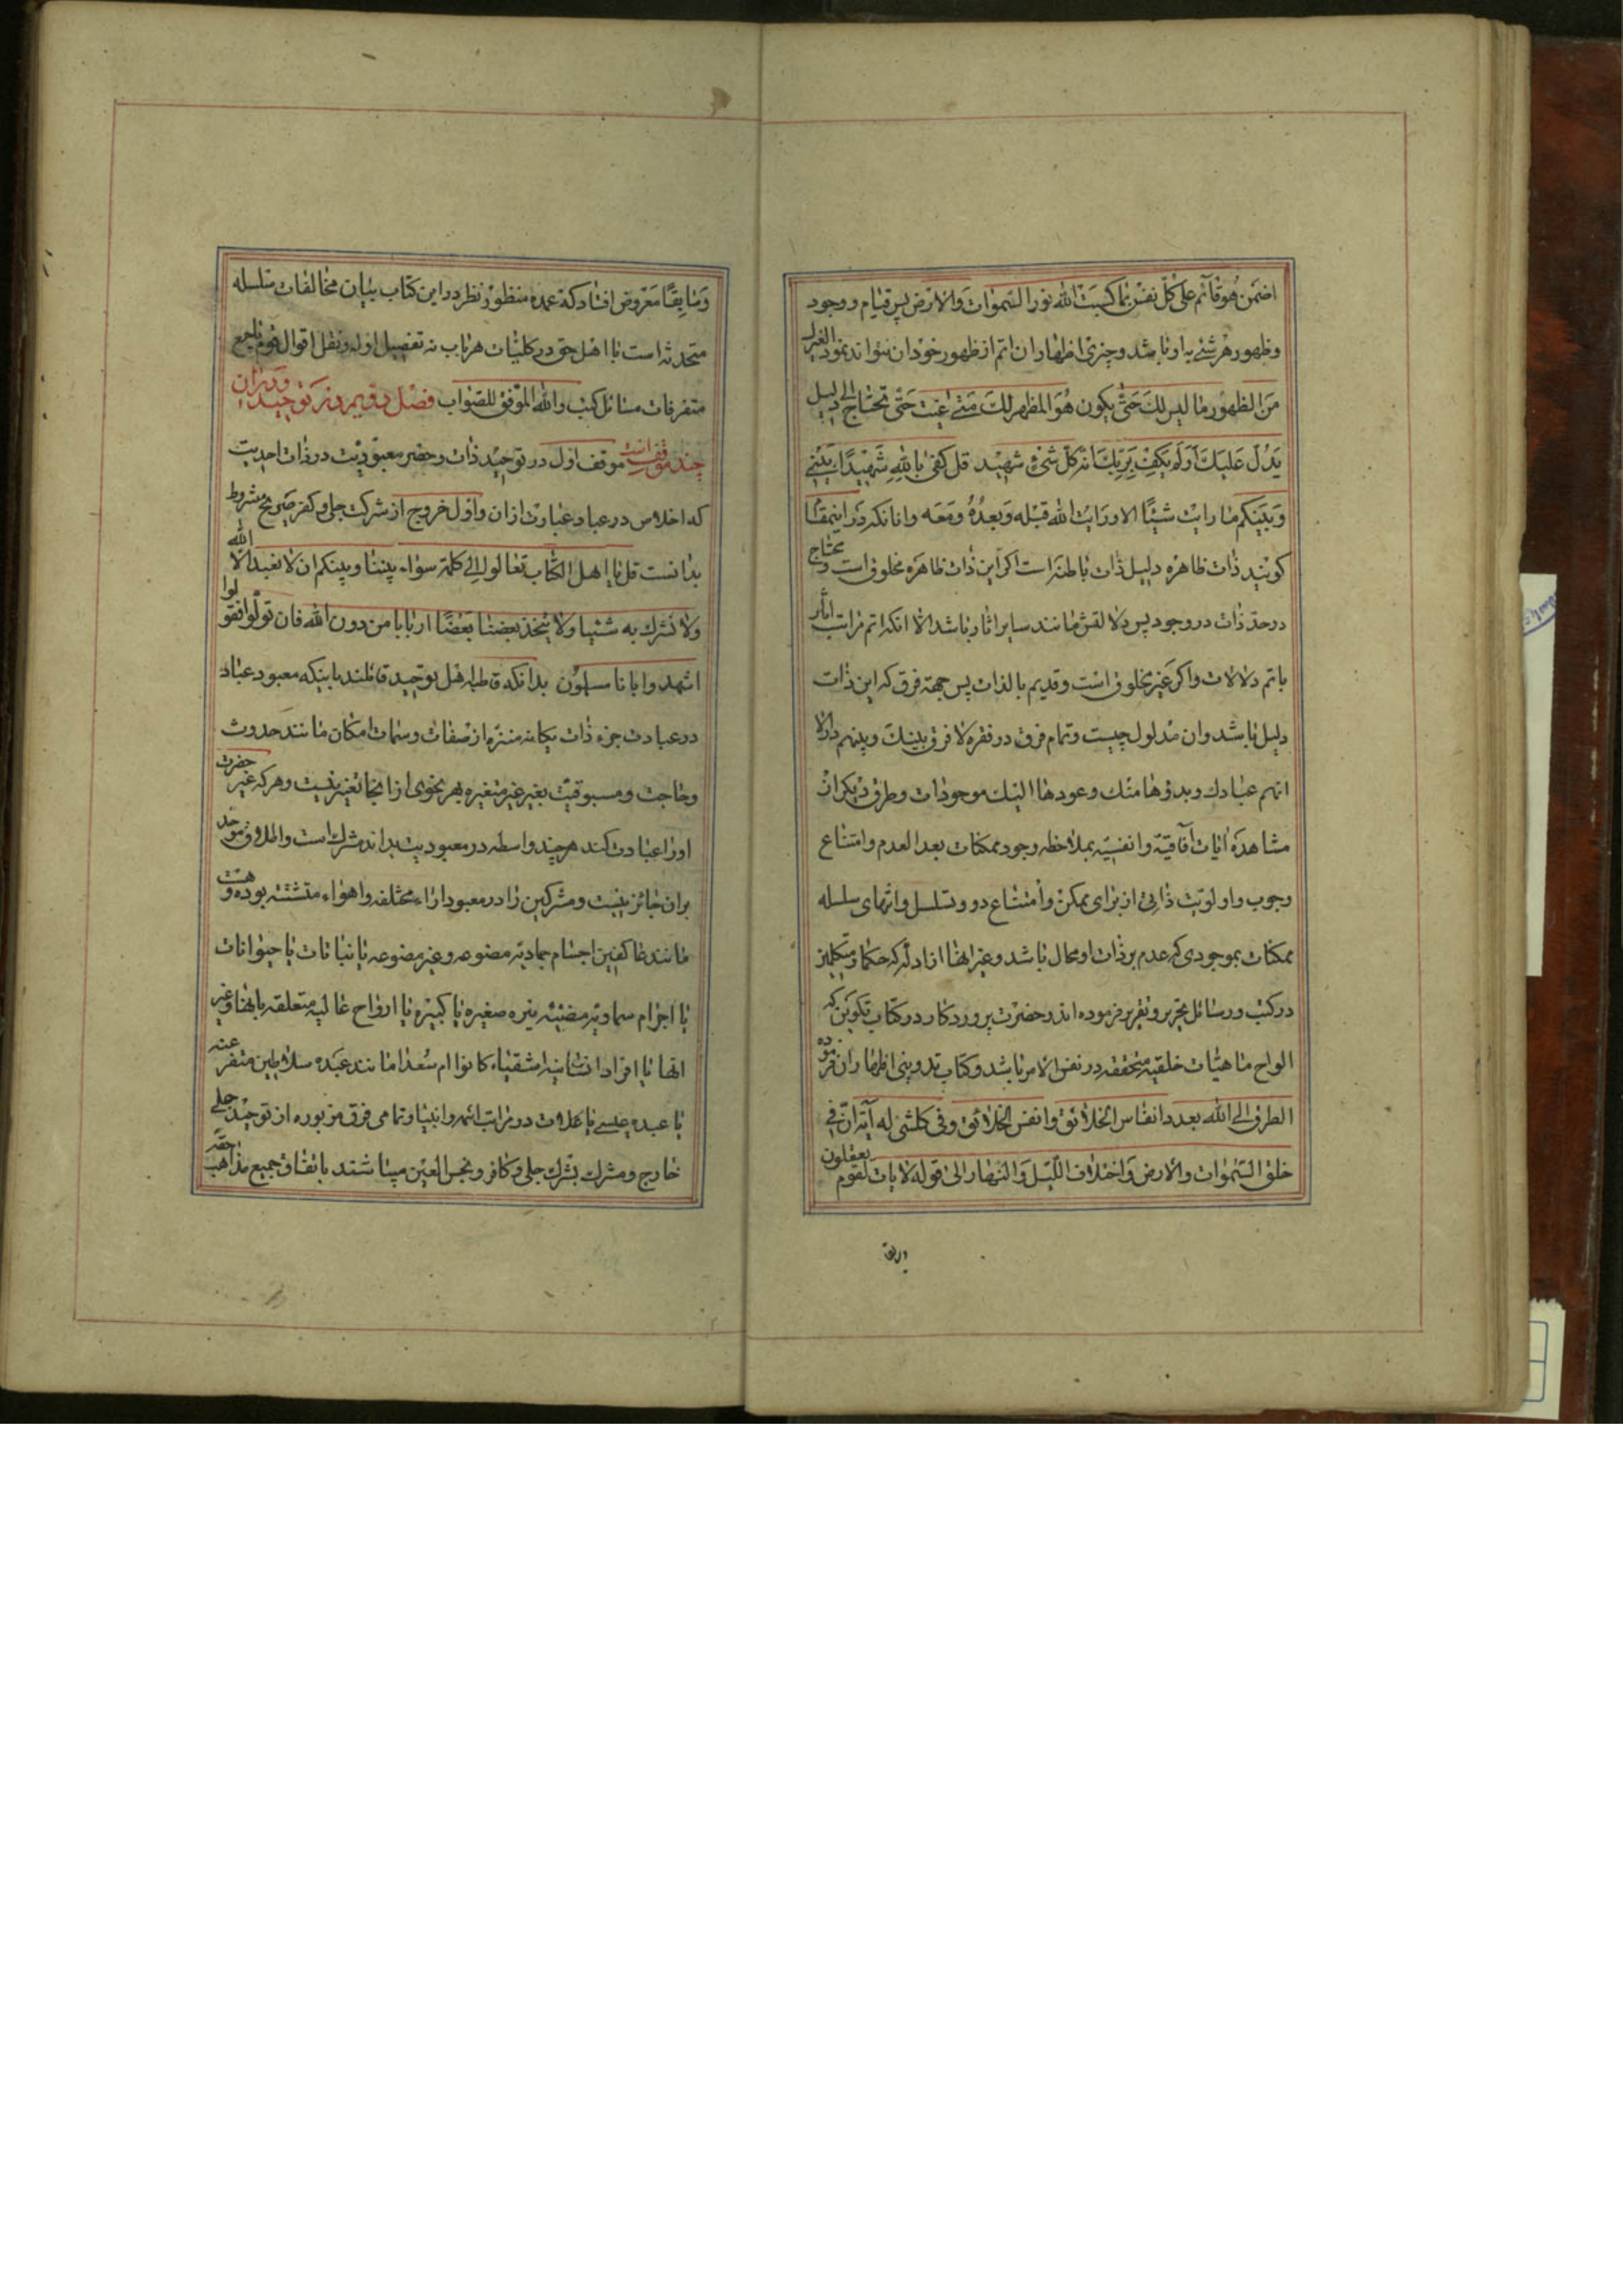 افمن هو قآئم علی کل نفس بما کسبت الله نور السموات والارض پس قیام و وجود
وظهور هر شئ به او باشد و چیزی اظهار ان اتم از ظهور خود ان نتواند نمود الغیرک
من الظهور ما لیس لک حتی یکون هو المظهر لک متی غبت حتی تحتاج الی دلیل
یدل علیک اولم یکف بربک انه کل شئ شهید قل کفی بالله شهیدا بینی
وبینکم ما رایت شیئا الا ورایت الله قبله وبعده ومعه وانانکه در اینمقام
کویند ذات ظاهره دلیل ذات باطنه است اکر این ذات ظاهره مخلوق است و محتاج
در حد ذات در وجود پس دلالتش مانند سایر اثار باشد الا انکه اتم مراتب اثار
باتم دلالات واکر غیر مخلوق است و قدیم بالذات پس جهة فرق که این ذات
دلیل باشد وان مدلول چیست و تمام فرق در فقره لا فرق بینک وبینهم الا
انهم عبادک وبدؤها منک وعودها الیک موجودات وطرق دیکران
مشاهده ایات آفاقیة وانفسیه بملاحظه وجود ممکنات بعد العدم وامتناع
وجوب واولویت ذاتی از برای ممکن وامتناع دور و تسلسل وانتهای سلسله
ممکنات بموجودی که عدم بر ذات او محال باشد وغیر انها از ادله که حکما ومتکلمین
در کتب ورسائل تحریر و تقریر فرموده اند و حضرت پروردکار در کتاب تکوین که
الواح ماهیات خلقیه متحققه در نفس الامر باشد و کتاب تدوینی اظهار ان فرموده
الطرق الی الله بعدد انفاس الخلائق وانفس الخلائق وفی کلشی له آیة ان فی
خلق السموات والارض واختلاف اللیل والنهار الی قوله لایات لقوم یعقلون
وسابقا معروض افتاد که عمده منظور نظر در این کتاب بیان مخالفات سلسله
متحدثه است با اهل حق در کلیات هر باب نه تفصیل ادله و نقل اقوال قوم یا جمیع
متفرقات مسائل کتب والله الموفق للصواب فصل دویم در توحید و در ان
چند موقف است موقف اول در توحید ذات و حضر معبودیت در ذات احدیت
که اخلاص در عباد عبارت ازان واول خروج از شرکت جلی و کفر صریح مشروط
بدانست قل یا اهل الکتاب تعالوا الی کلمة سواء بیننا وبینکم ان لا نعبد الا الله
ولا نشرک به شیئا ولا یتخذ بعضنا بعضا اربابا من دون الله فان تولوا فقولوا
اشهدوا بانا مسلمون بدانکه قاطبه اهل توحید قائلند باینکه معبود عباد
در عبادت جزء ذات یکانه منزه از صفات وسمات امکان مانند حدوث
وحاجت و مسبوقیت بغیر غیر متغیره بهر نحوی از انحا تغیر نیست و هر که غیر حضرت
اورا عبادت کند هر چند واسطه در معبودیت بداند مشرک است واطلاق موحد
بران جائز نیست و مشرکین را در معبود اراء مختلفه واهواء متشتته بوده و هست
مانند عاکفین اجسام جمادیه مصنوعه و غیر مصنوعه یا نباتات یا حیوانات
یا اجرام سماویه مضیئه نیره صغیره یا کبیره یا ارواح عالیه متعلقه بانها و غیر
انها یا افراد انسانیه اشقیاء کانوا ام سعدا مانند عبده سلاطین متفرعنه
یا عبده عیسی یا غلات در مراتب ائمه وانبیا وتمامی فرق مزبوره از توحید جلی
خارج و مشرک بشرک جلی و کافر و نجس العین میباشند باتفاق جمیع مذاهب حقه